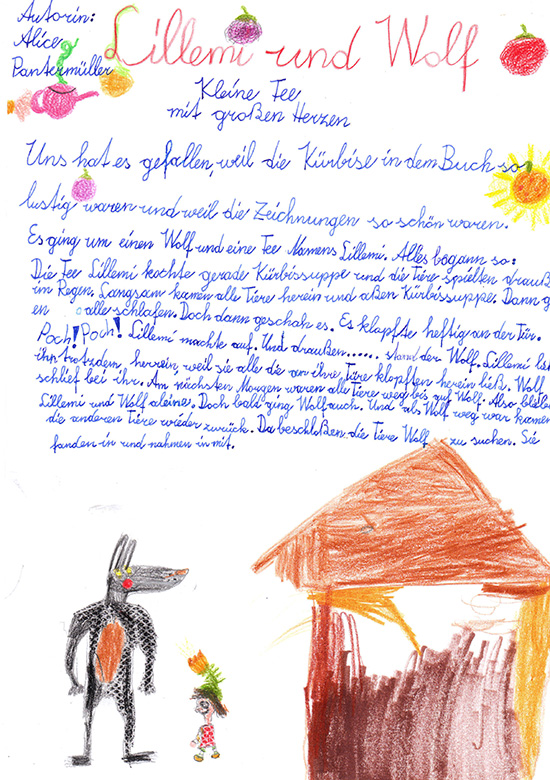 Autorin:
Alice
Pantermüller
Lillemi und Wolf
Kleine Fee
mit großen Herzen
Uns hat es gefallen, weil die Kürbise in dem Buch so
lustig waren und weil die Zeichnungen so schön waren.
Es ging um einen Wolf und eine Fee Namens Lillemi. Alles bogann so:
Die Fee Lillemi kochte gerade Kürbissuppe und die Tiere spielten drauß
im Regen. Langsam kamen alle Tiere herein und aßen Kürbissuppe. Dann g
en alle schlafen. Doch dann geschah es. Es klopfte heftig an der Tür.
Poch! Poch! Lillemi machte auf. Und draußen...... stand der Wolf. Lillemi ließ
ihn trotzdem, herrein, weil sie alle die an ihre Türe klopften herein ließ. Wolf
schlief bei ihr. Am nächsten Morgen waren alle Tiere weg bis auf Wolf. Also blieben
Lillemi und Wolf aleine. Doch bald ging Wolf auch. Und als Wolf weg war kamen
die anderen Tiere wieder zurück. Da beschloßen die Tiere Wolf zu suchen. Sie
fanden in und nahmen in mit.